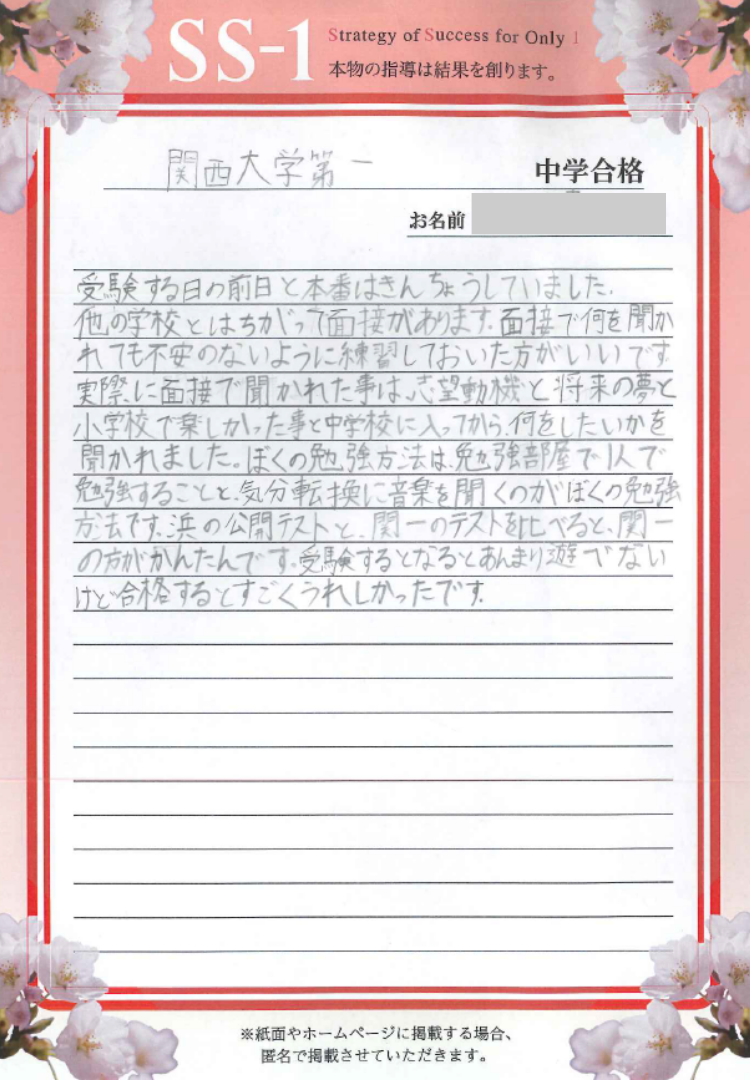 SS-1
Strategy of Success for Only 1
本物の指導は結果を創ります。
関西大学第一 中学合格
お名前
受験する日の前日と本番はきんちょうしていました。
他の学校とはちがって面接があります。面接で何を聞か
れても不安のないように練習しておいた方がいいです。
実際に面接で聞かれた事は、志望動機と将来の夢と
小学校で楽しかった事と中学校に入ってから、何をしたいかを
聞かれました。ぼくの勉強方法は、勉強部屋で1人で
勉強することと、気分転換に音楽を聞くのがぼくの勉強
方法です。浜の公開テストと、関一のテストを比べると、関一
の方がかんたんです。受験するとなるとあんまり遊べない
けど合格するとすごくうれしかったです。
※紙面やホームページに掲載する場合、
匿名で掲載させていただきます。